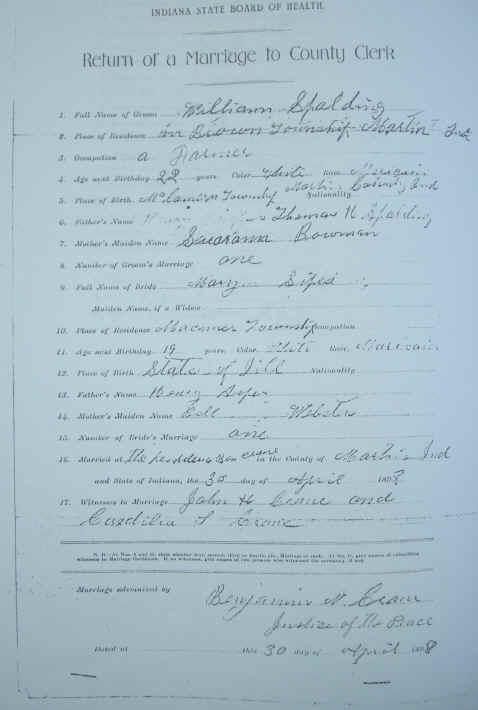 INDIANA STATE BOARD OF HEALTH.
Return of a Marriage to County Clerk
1. Full Name of Groom William Spalding
2. Place of Residence in Brown Township Martin Ind
3. Occupation a Farmer
4. Age next Birthday 22 years. Color White Race
5. Place of Birth McCameron Township Martin County Ind Nationality
6. Father's Name Thomas H Spalding
7. Mother's Maiden Name Bowman
8. Number of Groom's Marriage one
9. Full Name of Bride Mary Sipes
Maiden Name, if a Widow
10. Place of Residence Township Occupation
11. Age next Birthday, 19 years. Color, White Race,
12. Place of Birth State of Ill Nationality
13. Father's Name Henry Sipes
14. Mother's Maiden Name Webster
15. Number of Bride's Marriage one
16. Married at The residence Ben Crane in the County of Martin Ind
and State of Indiana, the 30 day of April 1898
17. Witnesses to Marriage John H Crane and
S Crane
Marriage solemnized by Benjamin N. Crane
Justice of the Peace
Dated at this 30 day of April 1898